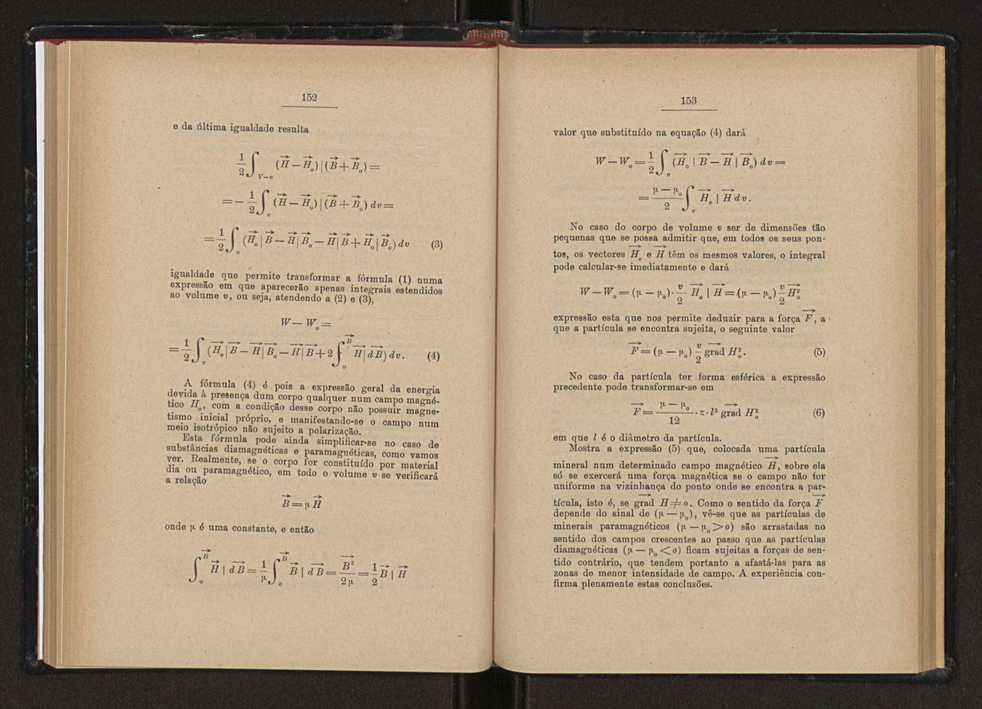 152
e da última igualdade resulta
½ ∫_{V−v} (H⃗ − H⃗₀) | (B⃗ + B⃗₀) =
= − ½ ∫_v (H⃗ − H⃗₀) | (B⃗ + B⃗₀) dv =
= ½ ∫_v (H⃗₀ | B⃗ − H⃗ | B⃗₀ − H⃗ | B⃗ + H⃗₀ | B⃗₀) dv (3)
igualdade que permite transformar a fórmula (1) numa
expressão em que aparecerão apenas integrais estendidos
ao volume v, ou seja, atendendo a (2) e (3),
W — W₀ =
= ½ ∫_v (H⃗₀ | B⃗ − H⃗ | B⃗₀ − H⃗ | B⃗ + 2 ∫₀^B⃗ H⃗ | dB⃗) dv. (4)
A fórmula (4) é pois a expressão geral da energia
devida à presença dum corpo qualquer num campo magné-
tico H⃗₀, com a condição desse corpo não possuir magne-
tismo inicial próprio, e manifestando-se o campo num
meio isotrópico não sujeito a polarização.
Esta fórmula pode ainda simplificar-se no caso de
substâncias diamagnéticas e paramagnéticas, como vamos
ver. Realmente, se o corpo for constituído por material
dia ou paramagnético, em todo o volume v se verificará
a relação
B⃗ = μ H⃗
onde μ é uma constante, e então
∫₀^B⃗ H⃗ | dB⃗ = 1/μ ∫₀^B⃗ B⃗ | dB⃗ = B⃗²/2μ = ½ B⃗ | H⃗
153
valor que substituído na equação (4) dará
W — W₀ = ½ ∫_v (H⃗₀ | B⃗ − H⃗ | B⃗₀) dv =
= (μ — μ₀)/2 ∫_v H⃗₀ | H⃗ dv.
No caso do corpo de volume v ser de dimensões tão
pequenas que se possa admitir que, em todos os seus pon-
tos, os vectores H⃗₀ e H⃗ têm os mesmos valores, o integral
pode calcular-se imediatamente e dará
W — W₀ = (μ — μ₀) · v/2 H⃗₀ | H⃗ = (μ — μ₀) v/2 H₀²
expressão esta que nos permite deduzir para a força F⃗, a
que a partícula se encontra sujeita, o seguinte valor
F⃗ = (μ — μ₀) v/2 grad H₀². (5)
No caso da partícula ter forma esférica a expressão
precedente pode transformar-se em
F⃗ = (μ — μ₀)/12 · π · l³ grad H₀² (6)
em que l é o diâmetro da partícula.
Mostra a expressão (5) que, colocada uma partícula
mineral num determinado campo magnético H⃗, sobre ela
só se exercerá uma força magnética se o campo não for
uniforme na vizinhança do ponto onde se encontra a par-
tícula, isto é, se grad H ≠ o. Como o sentido da força F⃗
depende do sinal de (μ — μ₀), vê-se que as partículas de
minerais paramagnéticos (μ — μ₀ > o) são arrastadas no
sentido dos campos crescentes ao passo que as partículas
diamagnéticas (μ — μ₀ < o) ficam sujeitas a forças de sen-
tido contrário, que tendem portanto a afastá-las para as
zonas de menor intensidade de campo. A experiência con-
firma plenamente estas conclusões.